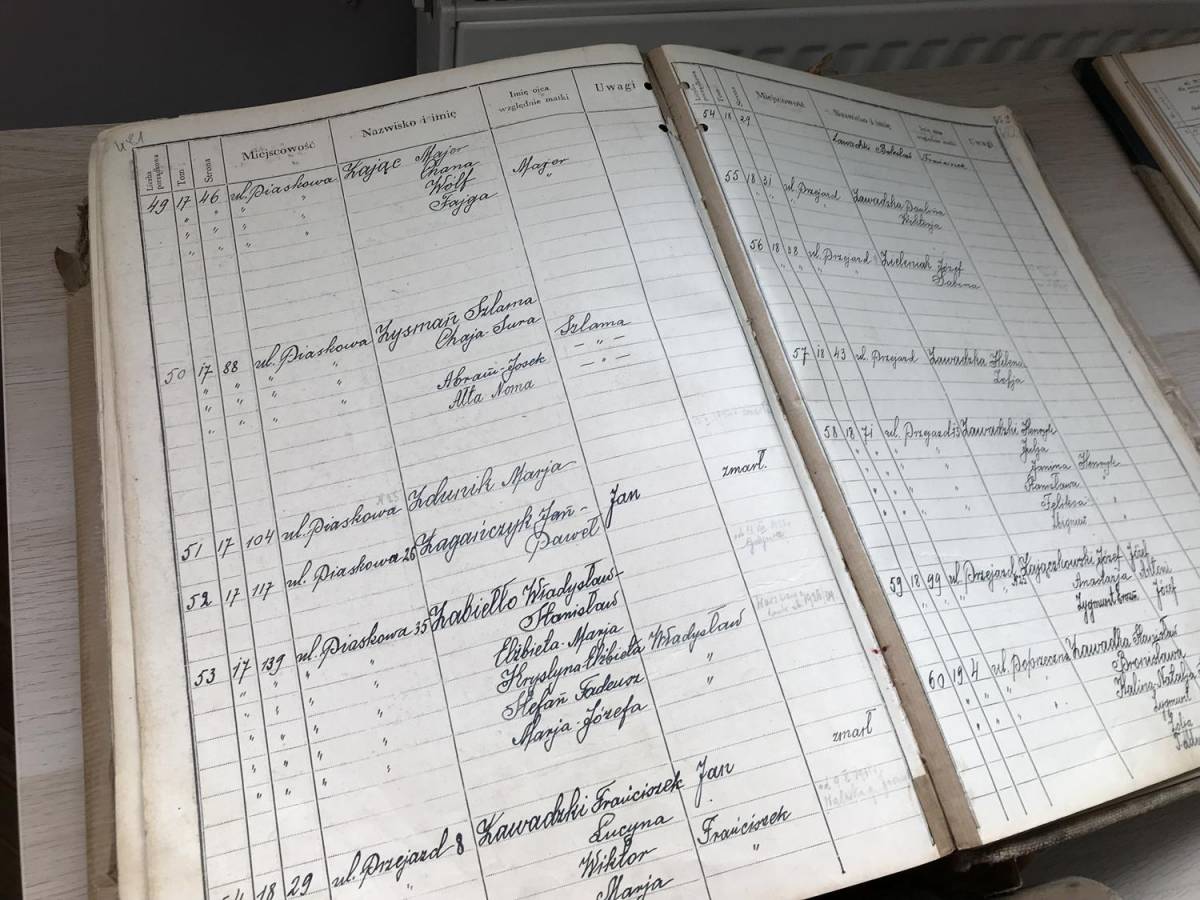 481
Liczba porządkowa Tom Strona Miejscowość Nazwisko i imię Imię ojca względnie matki Uwagi
49 17 46 ul. Piaskowa Zając Major
" " " " Chana
" " " " Wolf Major
" " " " Fajga "
50 17 88 ul. Piaskowa Zysmań Szlama
" " " Chaja-Sura
" " " Abram-Josek Szlama
" " " Ałta Noma — " —
51 17 104 ul. Piaskowa Zdunik Marja
52 17 117 ul. Piaskowa 26 Zagańczyk Jan- zmarł.
Paweł Jan
53 17 139 ul. Piaskowa 35 Zabiełło Władysław-
Stanisław
Elżbieta-Marja
Krystyna Elżbieta Władysław
Stefań Tadeusz "
Marja-Józefa "
54 18 29 ul. Przejazd 8 Zawadzki Frańciszek Jan zmarł
Lucyna
Wiktor Frańciszek
Marja "
Miejscowość Nazwisko i imię Uwagi
54 18 29 Zawadzki Bolesław
55 18 31 ul. Przejazd Zawadzka Paulina
" " " Wiktorja
56 18 38 ul. Przejazd Zieleniak Józef
" " " Sabina
57 18 43 ul. Przejazd Zawadzka Helena
Zofja
58 18 71 ul. Przejazd 13 Zawadzki Henryk
Julja
Janina Henryk
Stanisława "
Feliksa "
Zbigniew "
59 18 99 ul. Przejazd Zajączkowski Józef Józef
Anastazja Antoni
Zygmunt Józef
60 19 4 ul. Poprzeczna Zawadka Stanisław
Bronisława
Kalina-Natalja
Zygmunt
Zofja